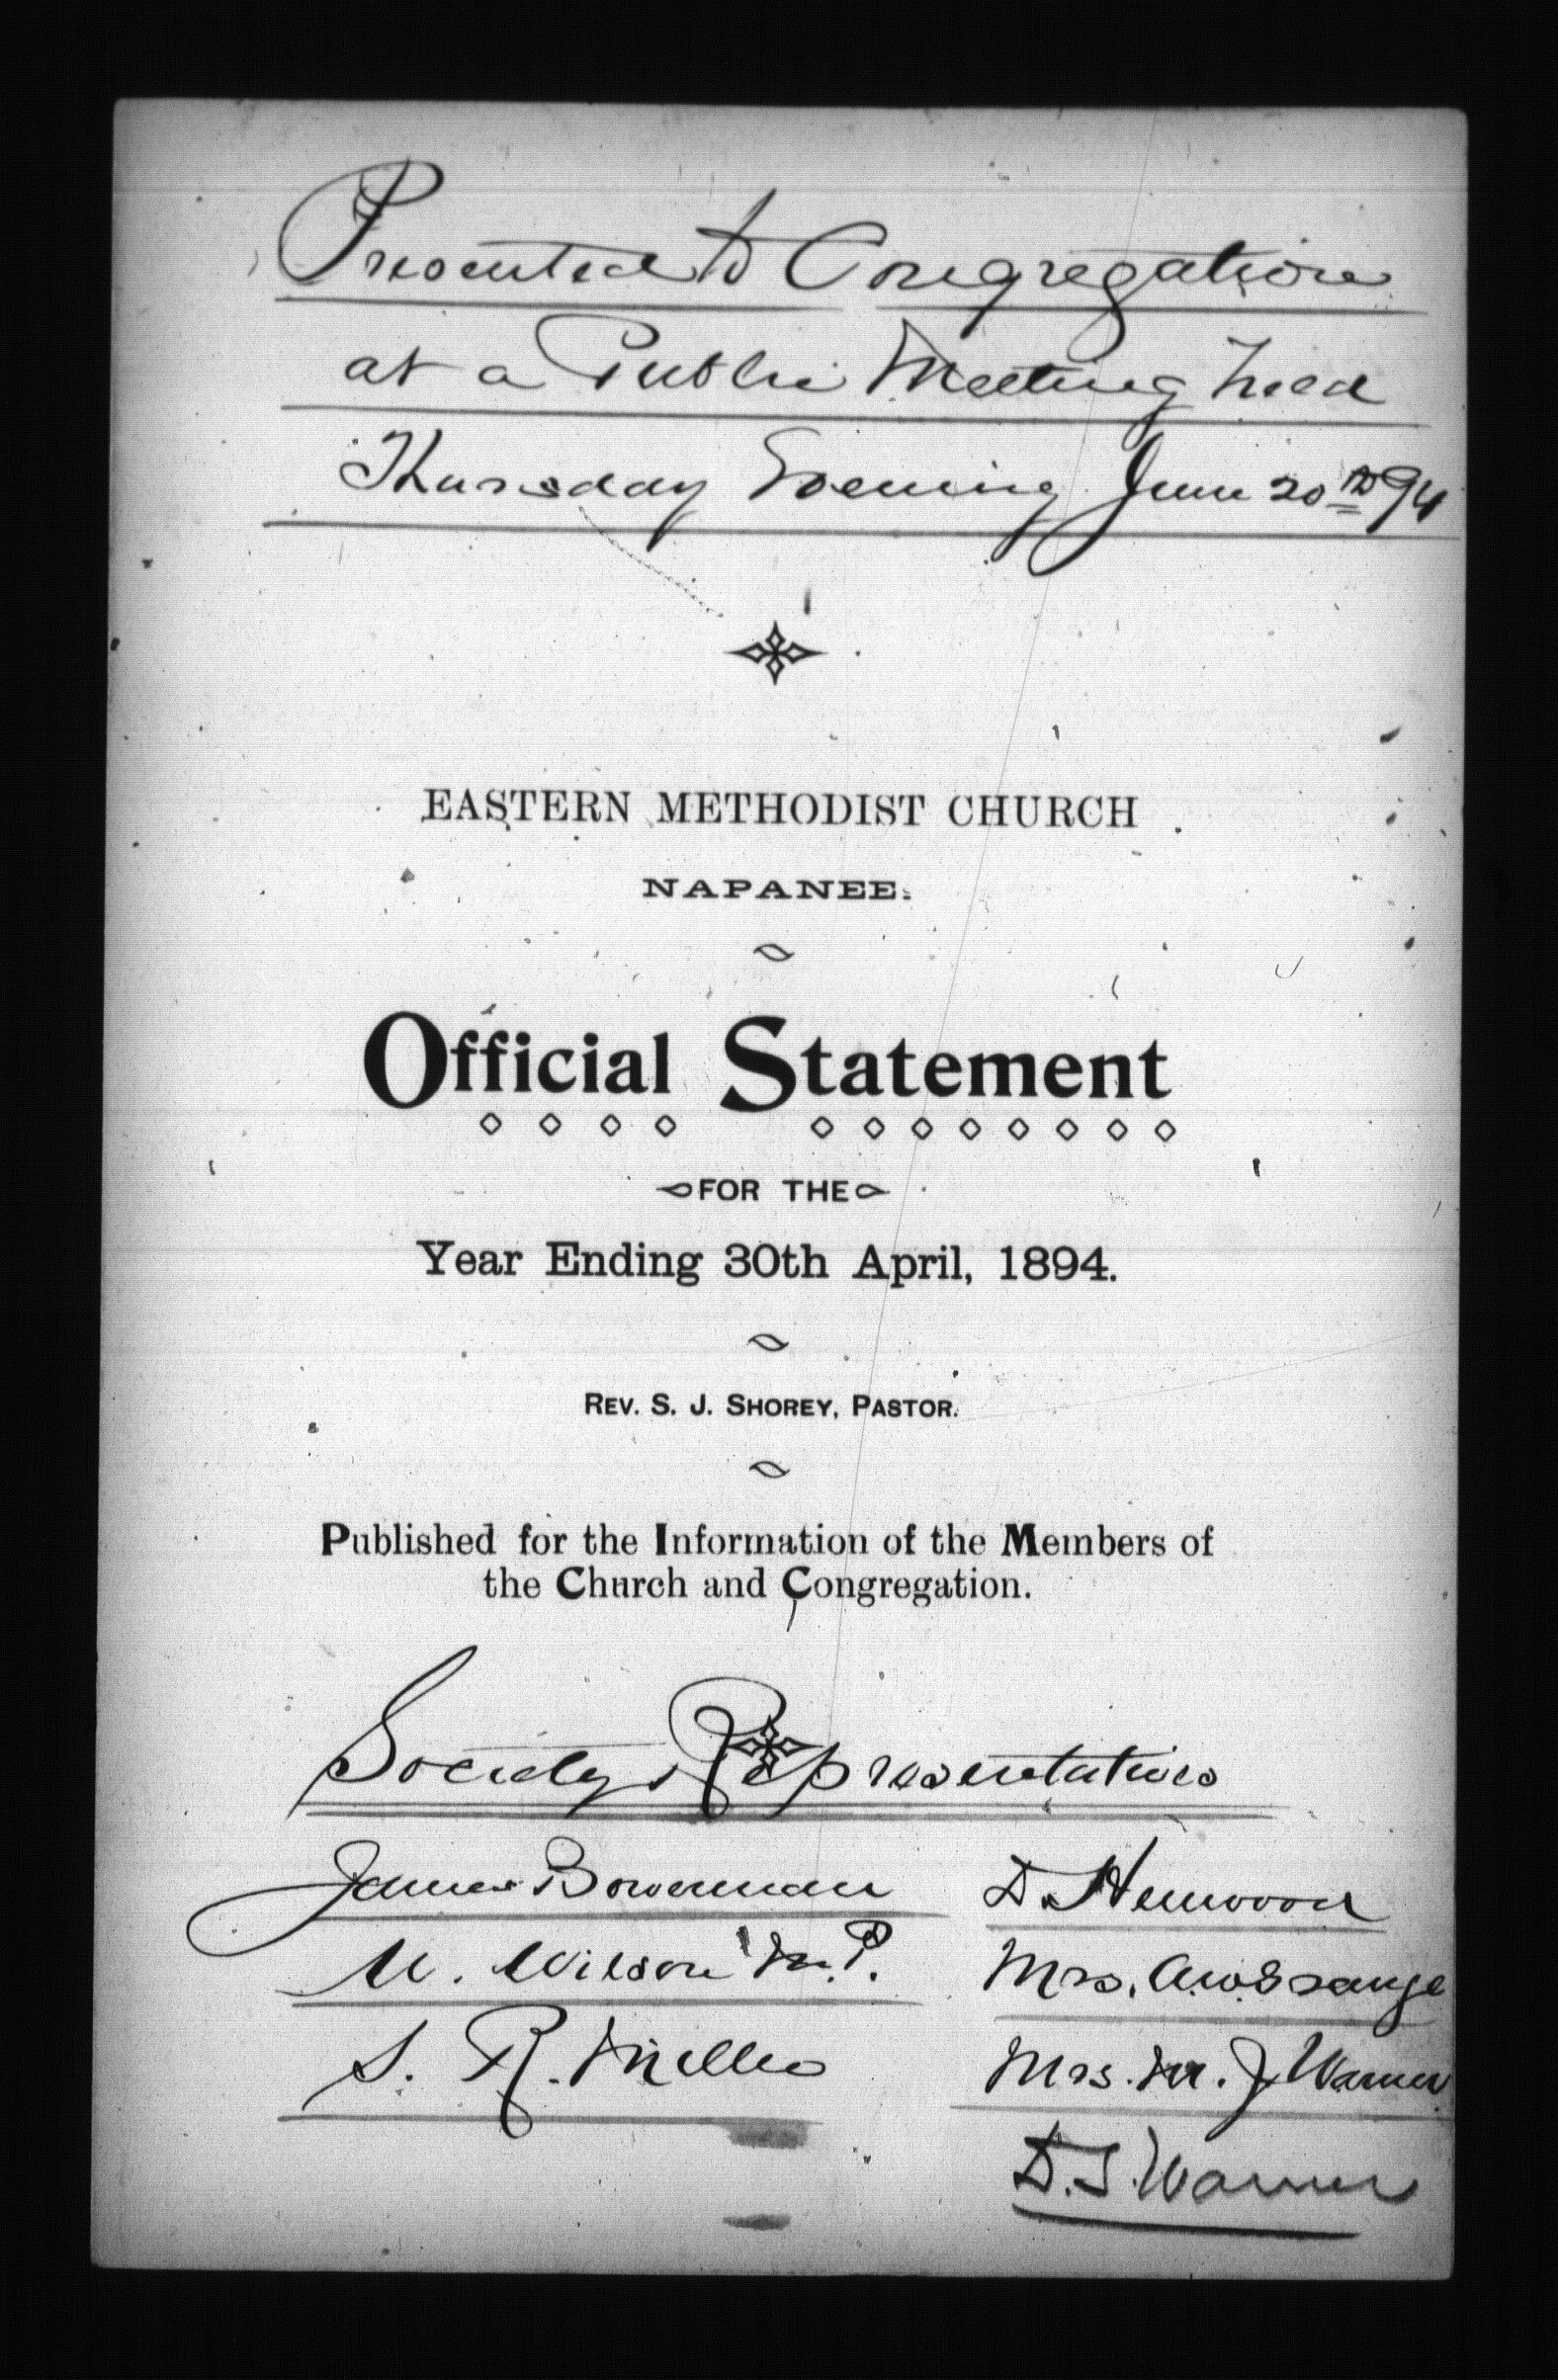 Presented to Congregation
at a Public Meeting held
Thursday Evening June 20th 94
EASTERN METHODIST CHURCH
NAPANEE.
Official Statement
FOR THE
Year Ending 30th April, 1894.
REV. S. J. SHOREY, PASTOR.
Published for the Information of the Members of
the Church and Congregation.
Society Representatives
James Bowerman
U. Wilson M.P.
S. R. Miller
D. Henwood
Mrs. A.W. Grange
Mrs. M. J. Warner
D. S. Warner